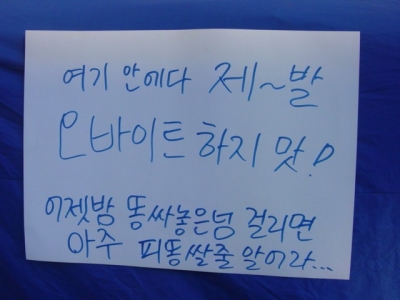 여기 안에다 제~발
오바이트 하지 맛!
어젯밤 똥싸놓은넘 걸리면
아주 피똥쌀줄 알어라...